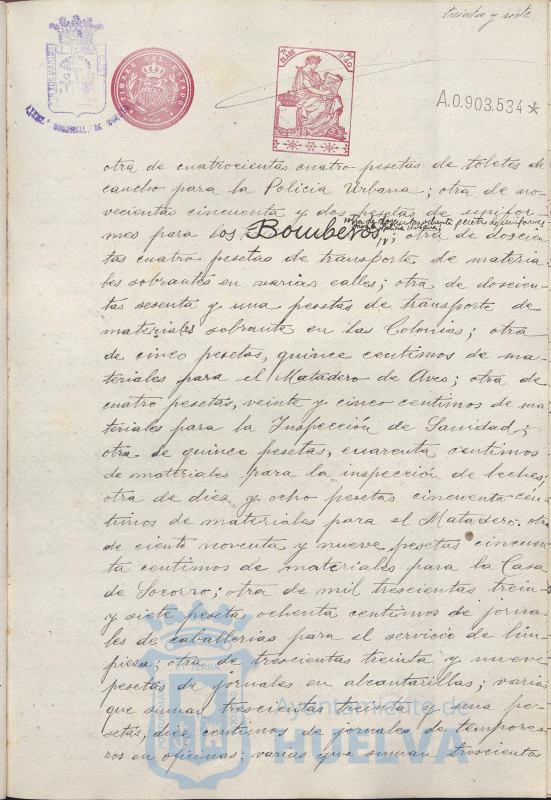 treinta y siete
CLASE
TIMBRE DEL ESTADO
A.0.903.534 *
otra de cuatrocientas cuatro pesetas de toletes de
caucho para la Policia Urbana; otra de no-
vecientas cincuenta y dos pesetas de unifor-
mes para los Bomberos; otra de doscien-
tas cuatro pesetas de transporte de materia-
les sobrantes en varias calles; otra de doscien-
tas sesenta y una pesetas de transporte de
materiales sobrante en las Colonias; otra
de cinco pesetas, quince centimos de ma-
teriales para el Matadero de Aves; otra de
cuatro pesetas, veinte y cinco centimos de ma-
teriales para la Inspección de Sanidad;
otra de quince pesetas, cuarenta centimos
de materiales para la inspección de leches;
otra de diez y ocho pesetas cincuenta cén-
timos de materiales para el Matadero; otra
de ciento noventa y nueve pesetas cincuen-
ta centimos de materiales para la Casa
de Socorro; otra de mil trescientas trein-
y siete pesetas ochenta centimos de jorna-
les de caballerias para el servicio de lim-
pieza; otra de trescientas treinta y nueve
pesetas de jornales en alcantarillas; varias
que suman trescientas treinta y una pe-
setas, diez centimos de jornales de tempore-
ros en oficinas; varias que suman trescientas
Ayuntamiento de
HUELVA